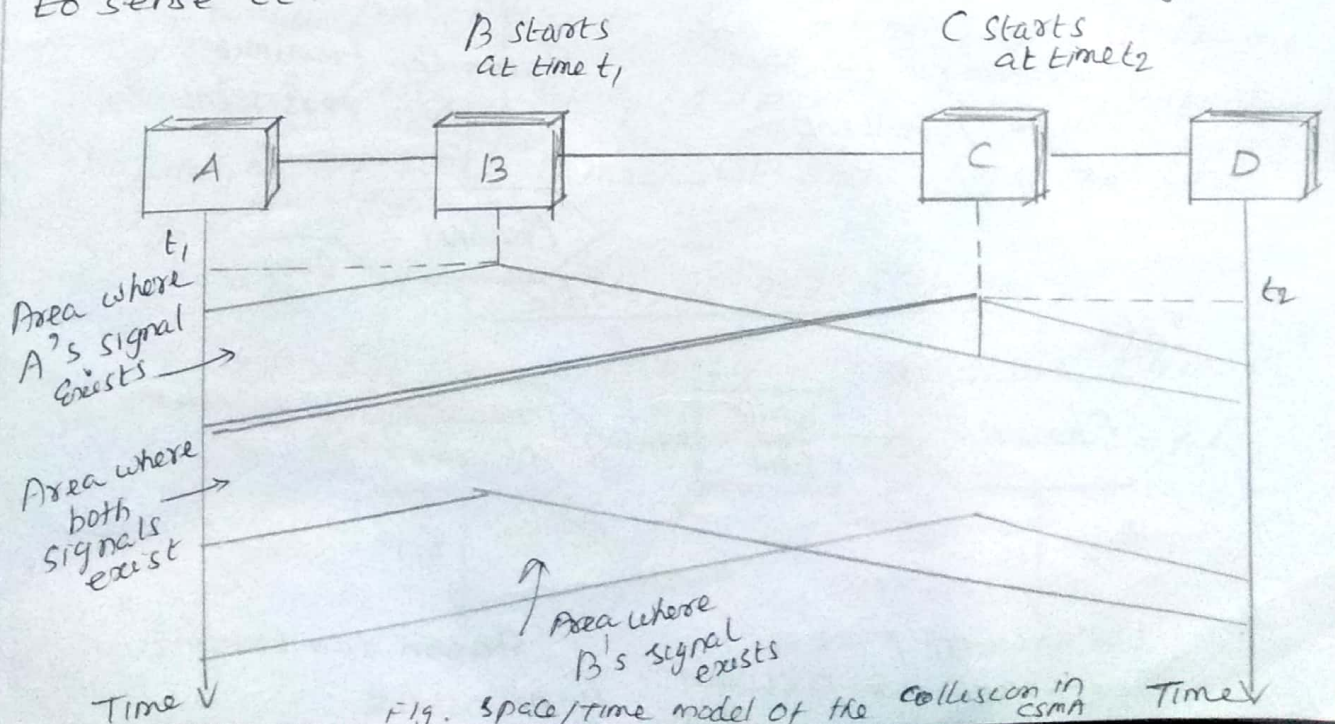 to sense it
B starts
at time t₁
C starts
at time t₂
A
B
C
D
t₁
t₂
Area where
A's signal
exists
Area where
both
signals
exist
Area where
B's signal
exists
Time
Time
Fig. Space/time model of the Collision in
CSMA